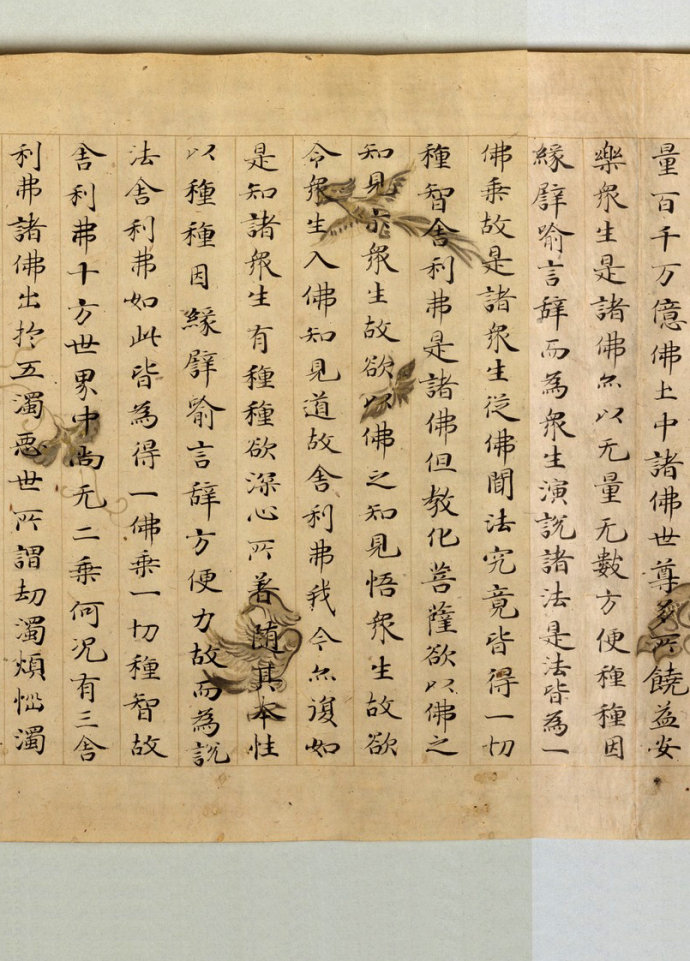 量百千万億佛土中諸佛世尊多所饒益安
樂衆生是諸佛亦以无量无數方便種種因
緣譬喻言辞而為衆生演說諸法是法皆為一
佛乗故是諸衆生従佛聞法究竟皆得一切
種智舍利弗是諸佛但教化菩薩欲以佛之
知見示衆生故欲以佛之知見悟衆生故欲
令衆生入佛知見道故舍利弗我今亦復如
是知諸衆生有種種欲深心所著随其本性
以種種因緣譬喻言辞方便力故而為說
法舍利弗如此皆為得一佛乗一切種智故
舍利弗十方世界中尚无二乗何况有三舍
利弗諸佛出於五濁悪世所謂劫濁煩惱濁